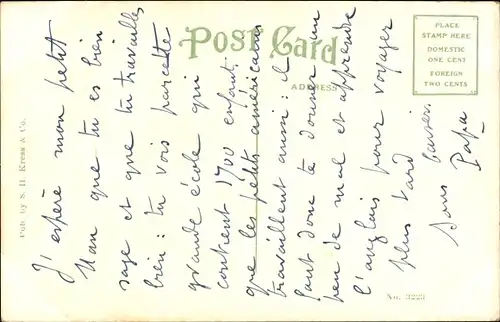 Post Card
ADDRESS
PLACE
STAMP HERE
DOMESTIC
ONE CENT
FOREIGN
TWO CENTS
Pub. by S. H. Kress & Co.
No. 3223
J'espère mon petit
Man que tu es bien
sage et que tu travailles
bien : tu vois par cette
grande école qui
contient 1700 enfants
que les petits américains
travaillent aussi : il
faut donc te donner un
peu de mal et apprendre
l'anglais pour voyager
plus tard
Bons baisers
Papa